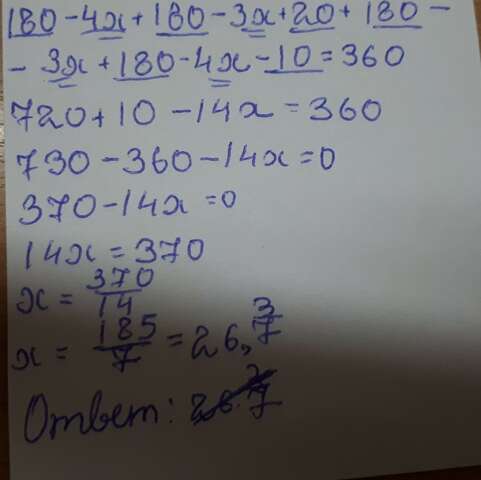 180-4x+180-3x+20+180-
-3x+180-4x-10=360
720+10-14x=360
730-360-14x=0
370-14x=0
14x=370
x=370/14
x=185/7=26,3/7
Ответ: